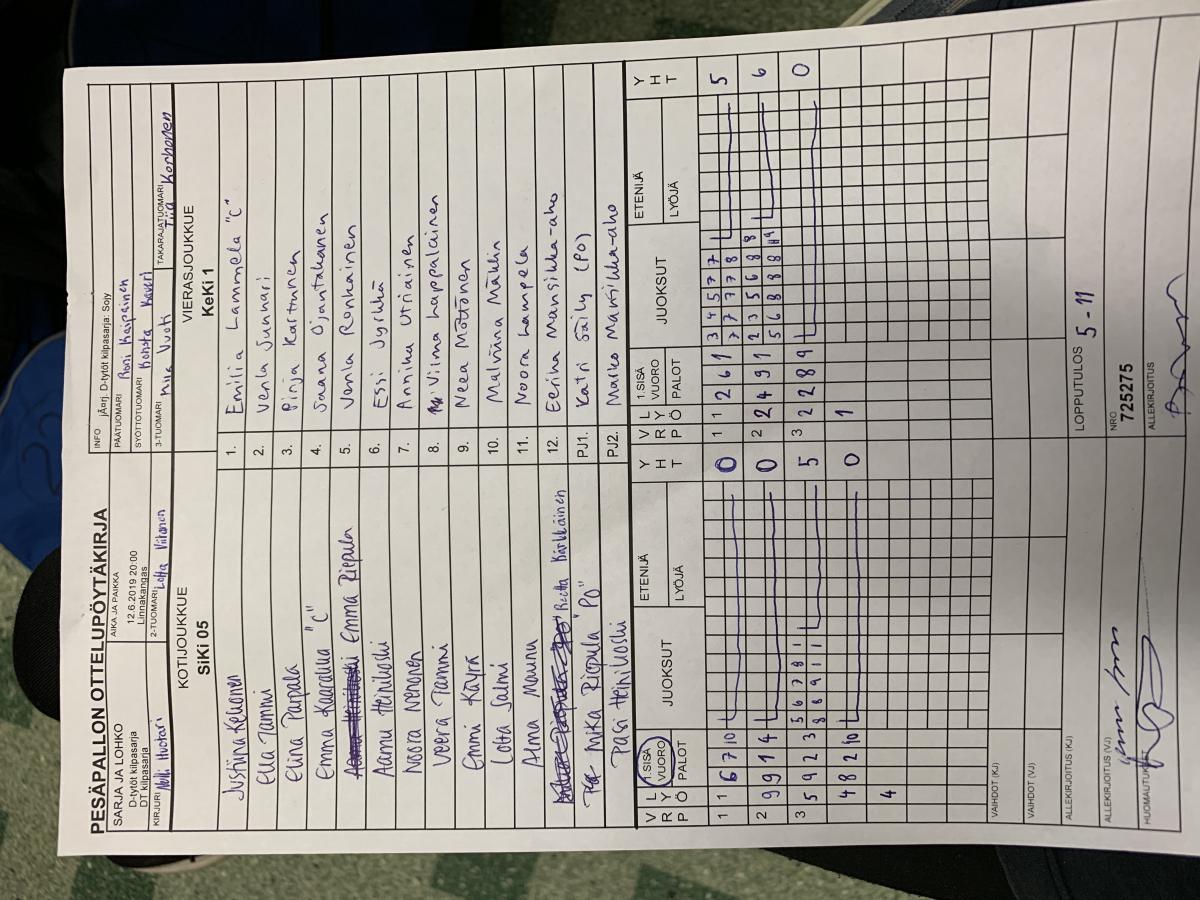 PESÄPALLON OTTELUPÖYTÄKIRJA
SARJA JA LOHKO
D-tytöt kilpasarja
DT kilpasarja
AIKA JA PAIKKA
12.6.2019 20:00
Linnakangas
INFO jÃ¤rj. D-tytöt kilpasarja: Sojy
PÄÄTUOMARI Roni Kaipainen
SYÖTTÖTUOMARI Konsta Kaveri
KIRJURI Nelli Huotari
2-TUOMARI Lotta Viitanen
3-TUOMARI Mika Vuoti
TAKARAJATUOMARI Tiia Korhonen
KOTIJOUKKUE
SiKi 05
VIERASJOUKKUE
KeKi 1
Justiina Kehonen 1. Emilia Lammela "C"
Ella Tammi 2. Venla Suunnari
Elina Parpala 3. Pinja Karttunen
Emma Kaarakka "C" 4. Saana Ojantakanen
Emma Riepula 5. Venla Ronkainen
Aamu Heinikoski 6. Essi Jylkkä
Noora Nenonen 7. Annika Utriainen
Veera Tammi 8. Vilma Lappalainen
Emmi Käyrä 9. Neea Möttönen
Lotta Salmi 10. Malviina Mäklin
Alma Maunu 11. Noora Lampela
Reetta Kärkkäinen 12. Eerika Mansikka-aho
Mika Riepula "PO" PJ1. Katri Säily (PO)
Pasi Heinikoski PJ2. Marko Mansikka-aho
V R P L Y Ö 1.SISÄ VUORO PALOT JUOKSUT ETENIJÄ LYÖJÄ Y H T
V R P L Y Ö 1.SISÄ VUORO PALOT JUOKSUT ETENIJÄ LYÖJÄ Y H T
1 1 6 7 10 0
1 1 2 6 1 3 4 5 7 7 5
7 7 7 7 8
2 9 9 1 4 0
2 2 4 9 1 2 3 5 6 8 8 6
5 6 8 8 8 9
3 5 9 2 3 5 6 7 8 1 5
8 8 9 1 1
3 2 2 8 9 0
4 8 2 10 0
1
4
VAIHDOT (KJ)
VAIHDOT (VJ)
ALLEKIRJOITUS (KJ)
LOPPUTULOS 5 - 11
ALLEKIRJOITUS (VJ)
NRO
725275
HUOMAUTUKSET
ALLEKIRJOITUS